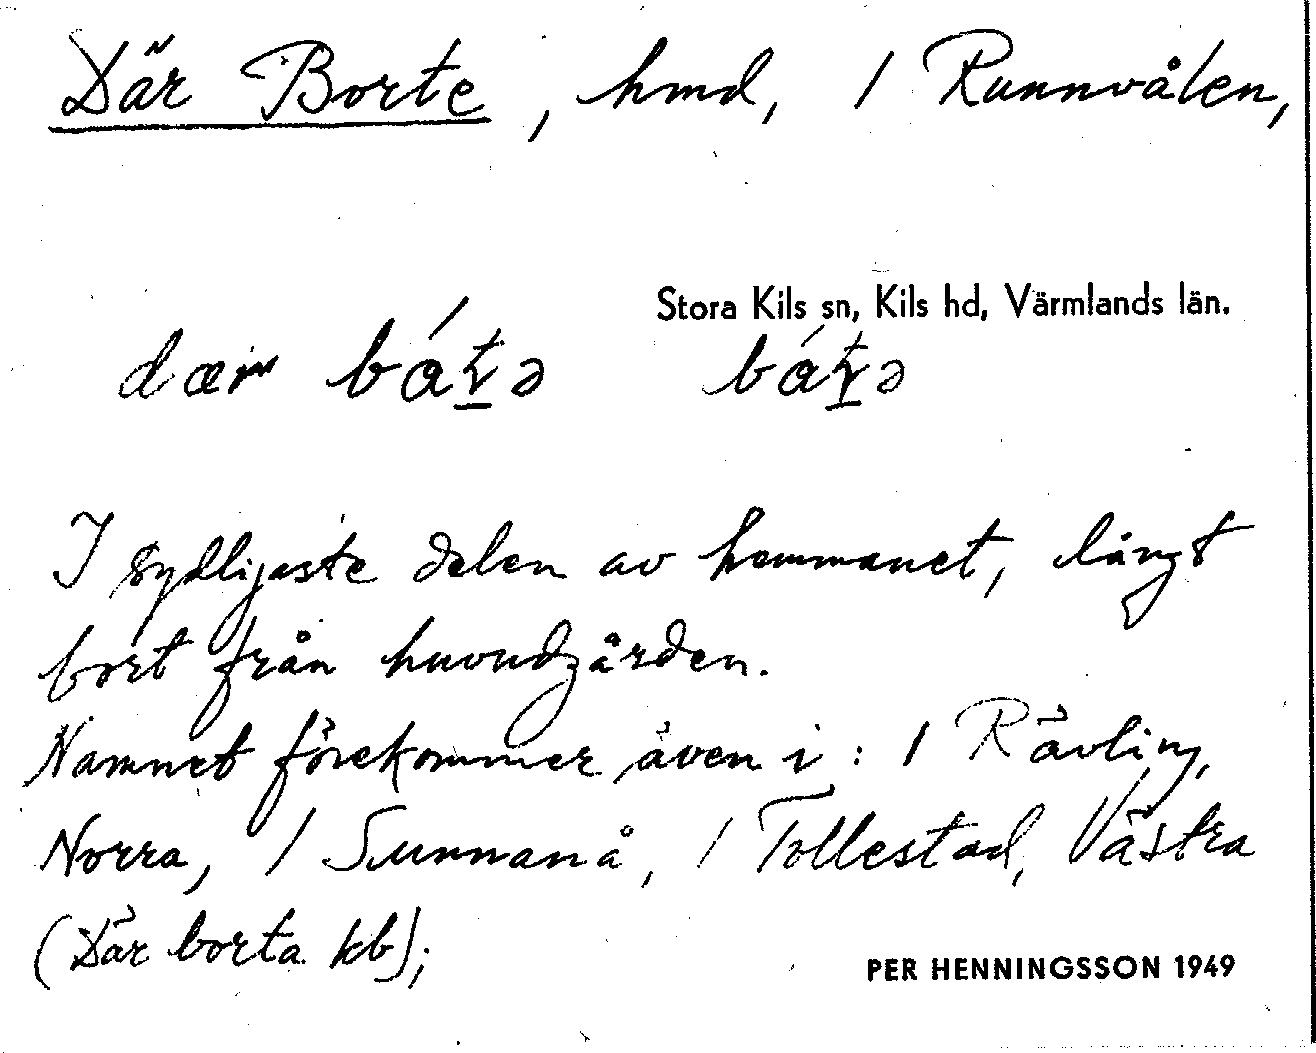 Där Borte, hmd, 1 Runnvålen,
Stora Kils sn, Kils hd, Värmlands län.
dær
I sydligaste delen av hemmanet, långt
bort från huvudgården.
Namnet förekommer även i: 1 Rävling,
Norra, 1 Sunnanå, 1 Tollestad, Västra
(Där borta kb);
PER HENNINGSSON 1949